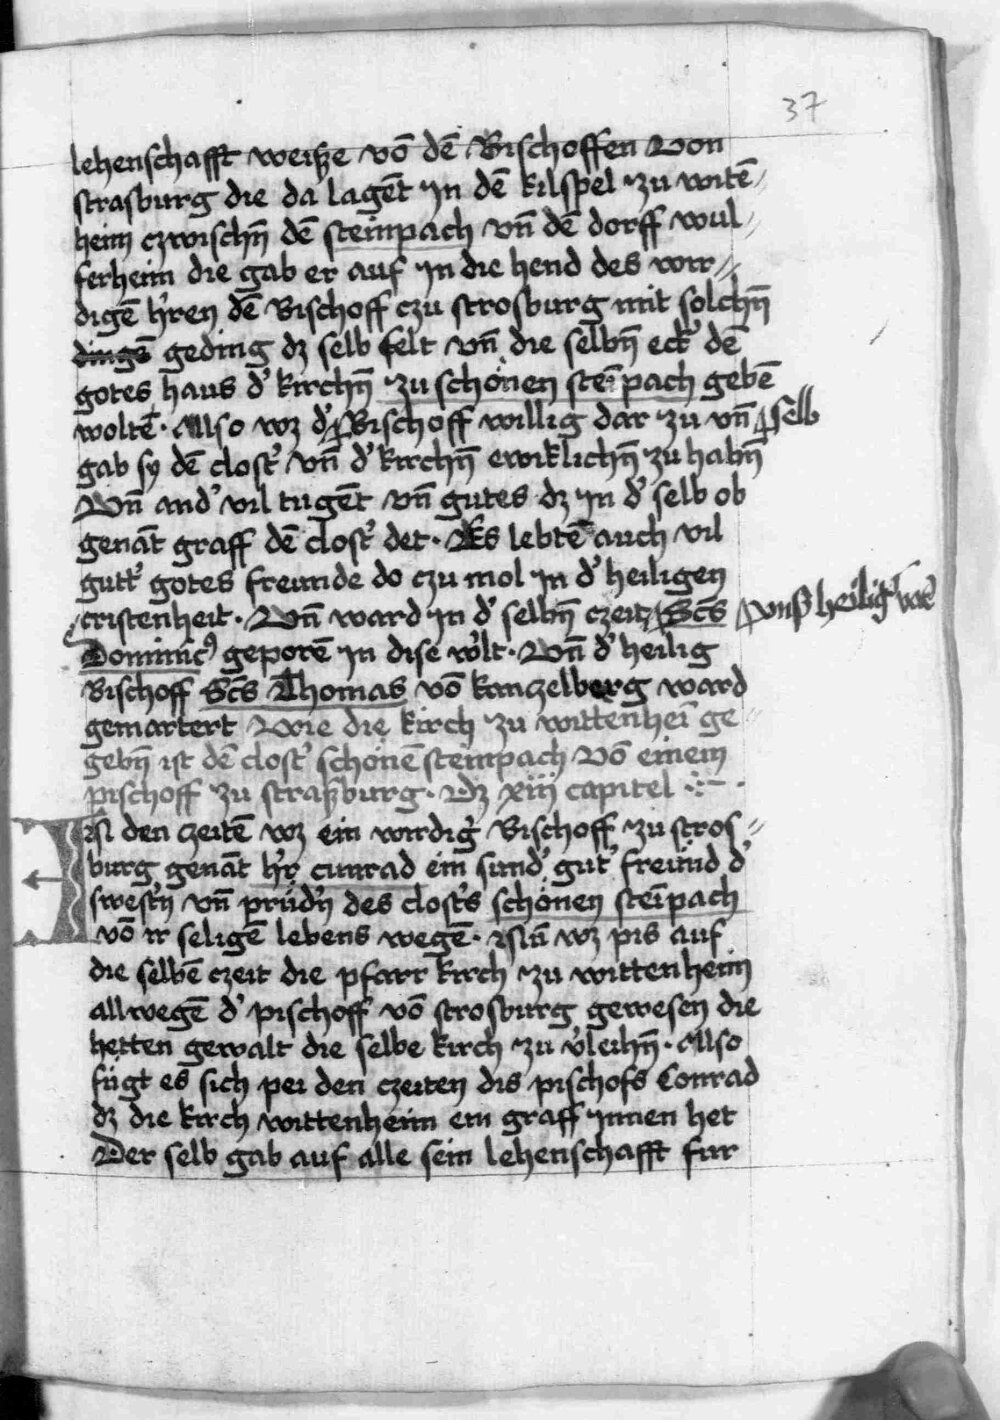 37
lehenschafft weisze vō dē Bischoffen Von
strasburg die da lagēt in dē kilspel zu witē
heim czwischn̄ dē steinpach vn̄ dē dorff wul
ferheim die gab er auf in die hend des wir
digē h'ren dē Bischoff czu strosburg mit solchn̄
dingē geding dz selb felt vn̄ die selbn̄ eck' dē
gotes haus d' kirchn̄ zu schönen stēipach gebē
woltē. Also wz d' Bischoff willig dar zu vn̄ selb
gab sy dē clost' vn̄ d' kirchn̄ ewiklichn̄ zu habn̄
Vn̄ and' vil tugēt vn̄ gutes dz in d' selb ob
genāt graff dē clost' det. Es lebtē auch vil
gutt' gotes freunde do czu mol in d' heiligen
cristenheit. Vn̄ ward in d' selbn̄ czeit Scs̄ vnß heilig' vat'
Dominic9 geporē in dise w'lt. Vn̄ d' heilig
Bischoff Scs̄ Thomas vō kanczelberg ward
gemartert Wie die kirch zu wittenhei ̄ ge
gebn̄ ist dē clost' schönē steinpach Vō einem
pischoff zu straszburg. Dz xiij capitel
In den zeitē wz ein wirdig' Bischoff zu stros
burg genāt h'r cunrad ein sund' gut' freünd d'
swest'n vn̄ prüd'n des clost's schönen stēipach
vō ir seligē lebens wegē. Nū wz pis auf
die selbē czeit die pfarr kirch zu wittenheim
allwegē d' pischoff vō strosburg gewesen die
hetten gewalt die selbe kirch zu v'leihn̄. Also
fügt es sich pei den czeiten dis pischofs Conrad
dz die kirch wittenheim ein graff innen het
Der selb gab auf alle sein lehenschafft fur